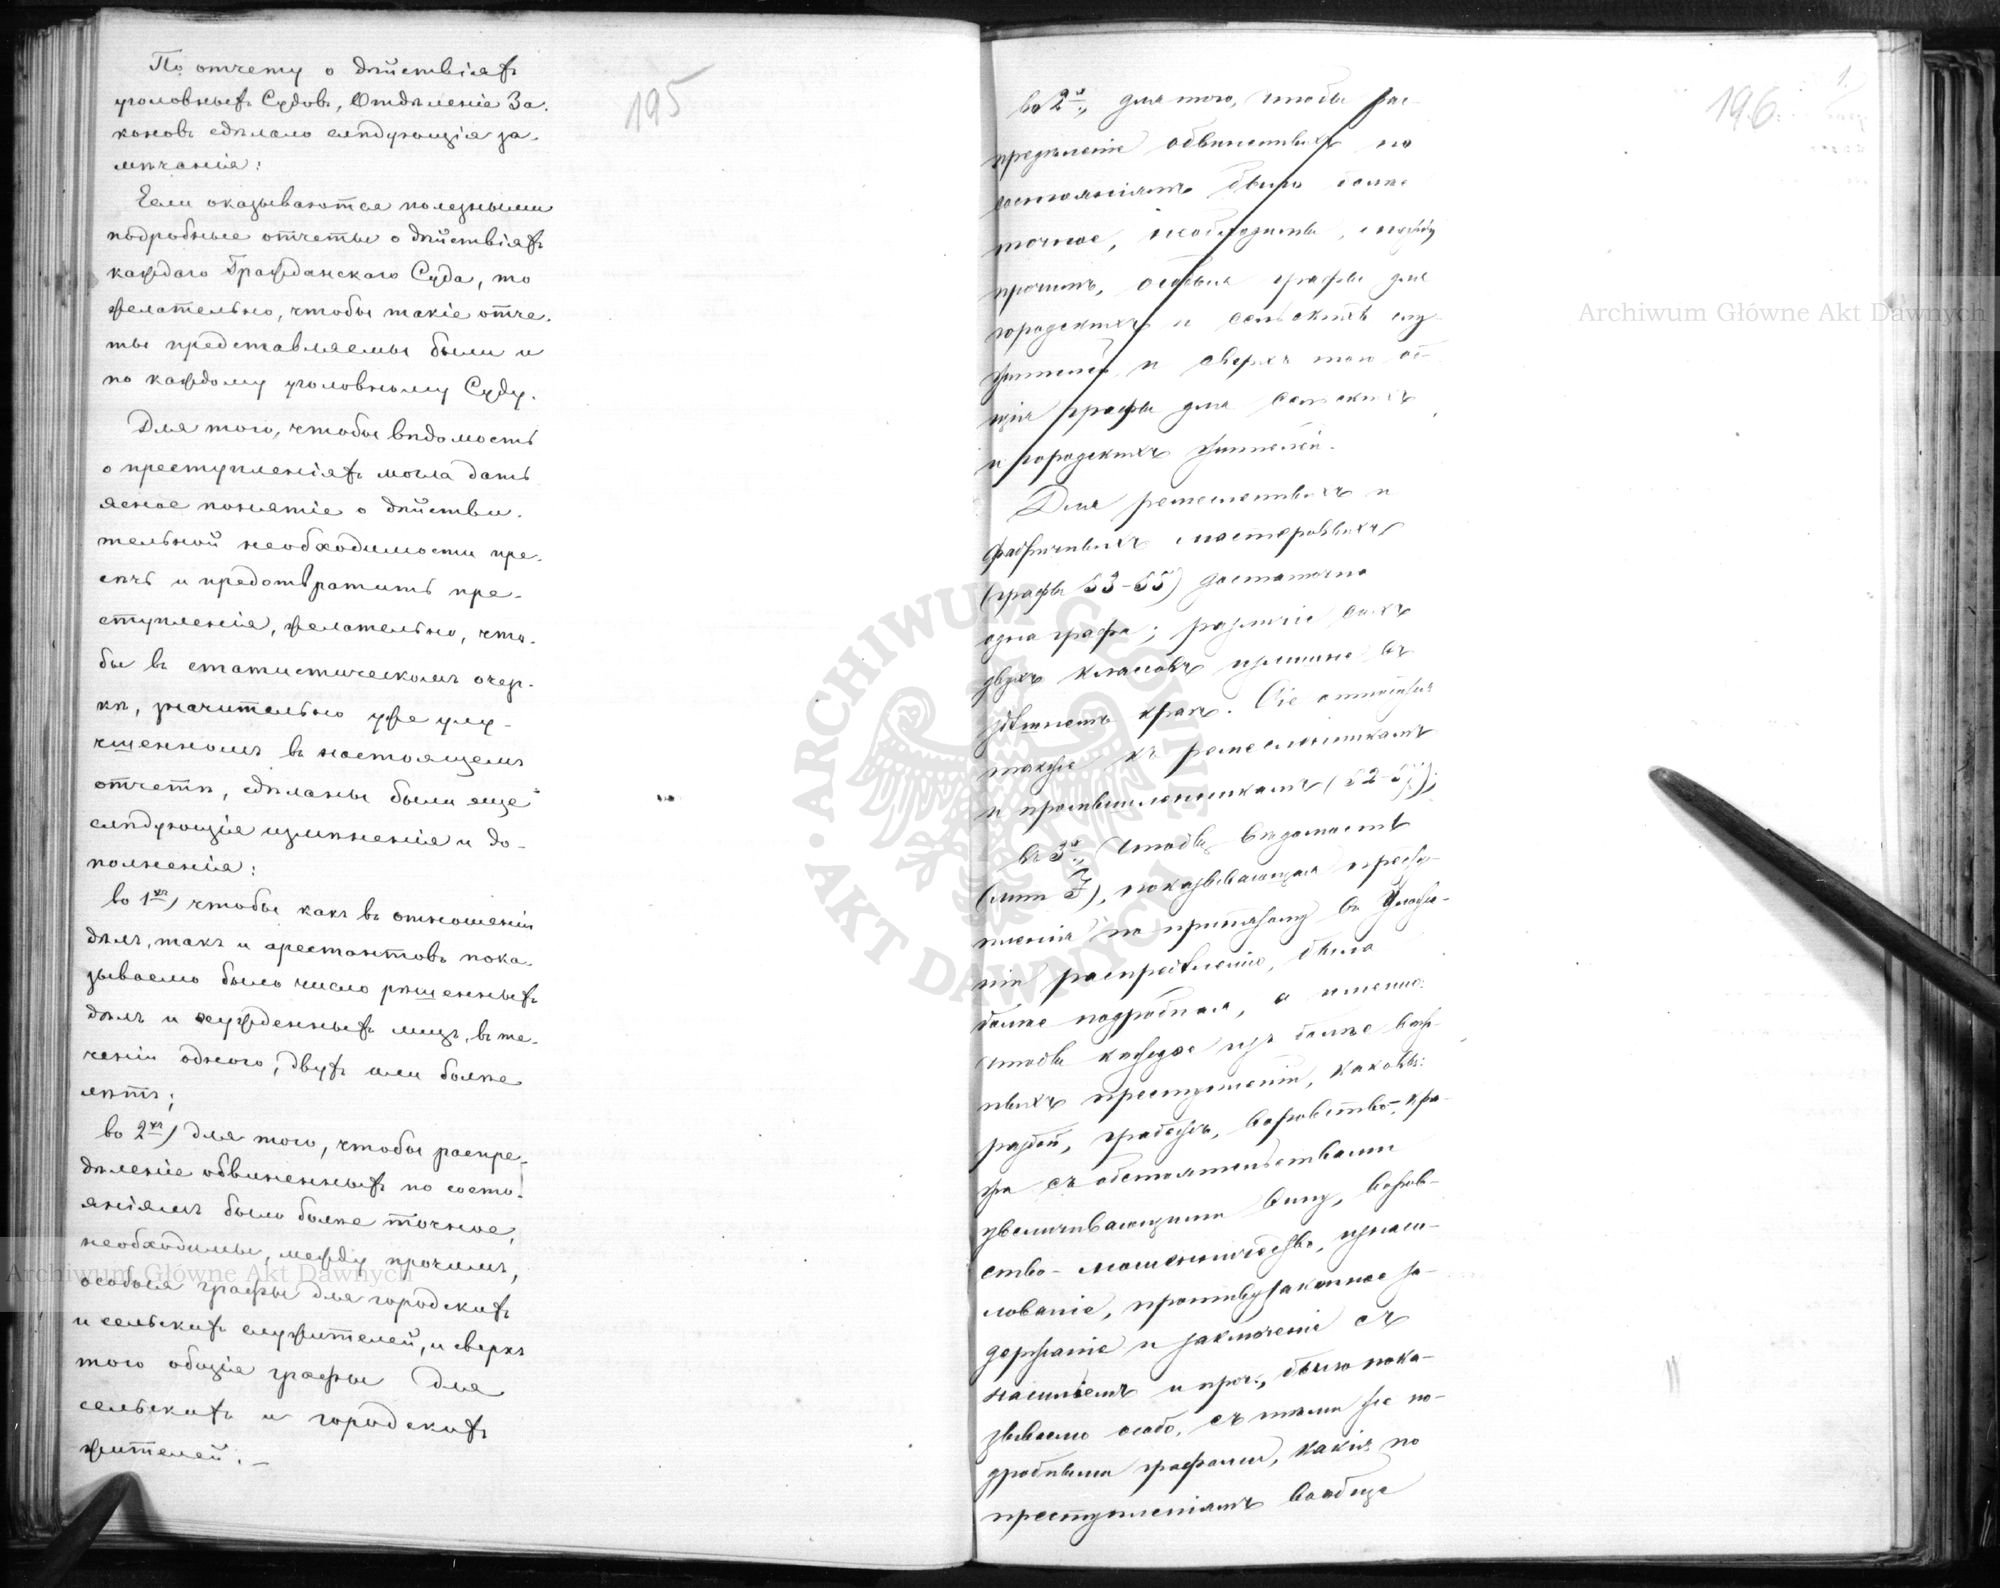 195
По отчету о дѣйствіяхъ
уголовныхъ Судовъ, Отдѣленіе За-
коновъ сдѣлало слѣдующія за-
мѣчанія:
Если оказываются полезными
подробные отчеты о дѣйствіяхъ
каждаго Гражданскаго Суда, то
желательно, чтобы такіе отче-
ты представляемы были и
по каждому уголовному Суду.
Для того, чтобы вѣдомость
о преступленіяхъ могла дать
ясное понятіе о дѣйстви-
тельной необходимости пре-
сѣчь и предотвратить пре-
ступленія, желательно, что-
бы въ статистическомъ очер-
кѣ, значительно уже улу-
чшенномъ въ настоящемъ
отчетѣ, сдѣланы были еще
слѣдующія измѣненія и до-
полненія:
во 1хъ) чтобы какъ въ отношеніи
дѣлъ, такъ и арестантовъ пока-
зываемо было число рѣшенныхъ
дѣлъ и сужденныхъ лицъ, въ те-
ченіи одного, двухъ или болѣе
лѣтъ;
во 2хъ) для того, чтобы распре-
дѣленіе обвиненныхъ по состо-
яніямъ было болѣе точное,
необходимы, между прочимъ,
особыя графы для городскихъ
и сельскихъ служителей, и сверхъ
того общія графы для
сельскихъ и городскихъ
жителей. —
1.
196
во 2х., для того, чтобы рас-
предѣленіе обвиненныхъ по
состояніямъ было болѣе
точное, необходимы, между
прочимъ, особыя графы для
городскихъ и сельскихъ слу-
жителей и сверхъ того об-
щія графы для сельскихъ
и городскихъ жителей.
Для ремесленныхъ и
фабричныхъ мастеровыхъ
(графы 53-55) достаточно
одна графа; различіе сихъ
двухъ классовъ излишне въ
здѣшнемъ краѣ. Сіе относится
также къ ремесленникамъ
и промышленникамъ (52-5);
въ 3х., чтобы вѣдомость
(лит ), показывающая престу-
пленія по принятому въ Уложе-
ніи распредѣленію, была
болѣе подробная, а именно:
чтобы каждое изъ болѣе важ-
ныхъ преступленій, каковы:
разбой, грабежъ, воровство-кра-
жа съ обстоятельствами
увеличивающими вину, воров-
ство-мошенничество, изнаси-
лованіе, противузаконное за-
держаніе и заключеніе съ
насиліемъ и проч., было пока-
зываемо особо, съ тѣми же по-
дробными графами, какія по
преступленіямъ вообще
Archiwum Główne Akt Dawnych
Archiwum Główne Akt Dawnych
ARCHIWUM GŁÓWNE · AKT DAWNYCH ·